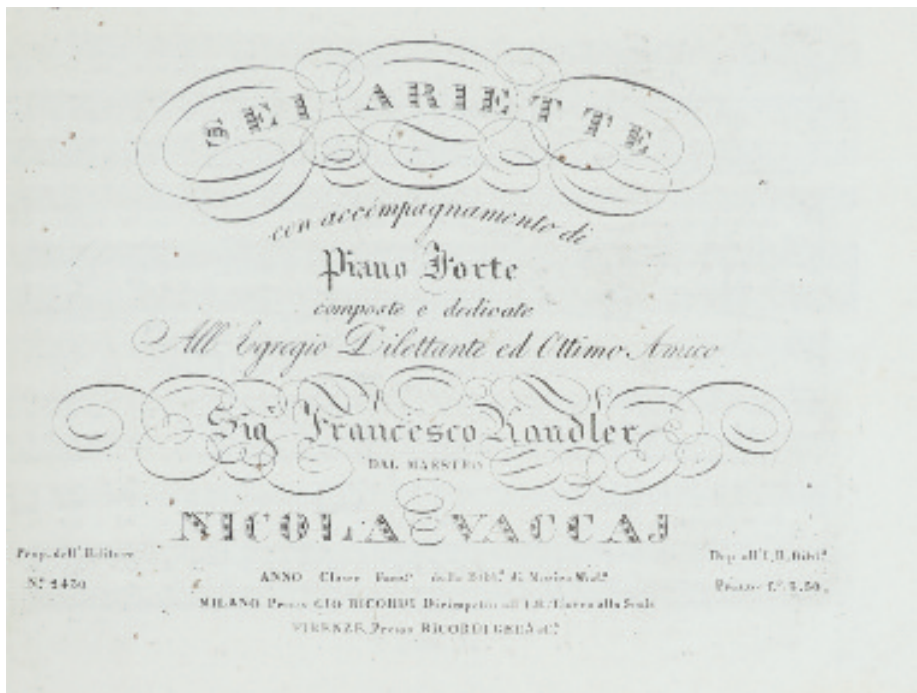 SEI ARIETTE
con accompagnamento di
Piano Forte
composte e dedicate
All' Egregio Dilettante ed Ottimo Amico
Sig.r Francesco Kandler
DAL MAESTRO
NICOLA VACCAJ
Prop. dell' Editore
N.º 2430
Dep. all' I. R. Bibl.a
ANNO Classe di Musica
MILANO Presso GIO RICORDI Dirimpetto all' I. R. Teatro alla Scala
FIRENZE Presso RICORDI